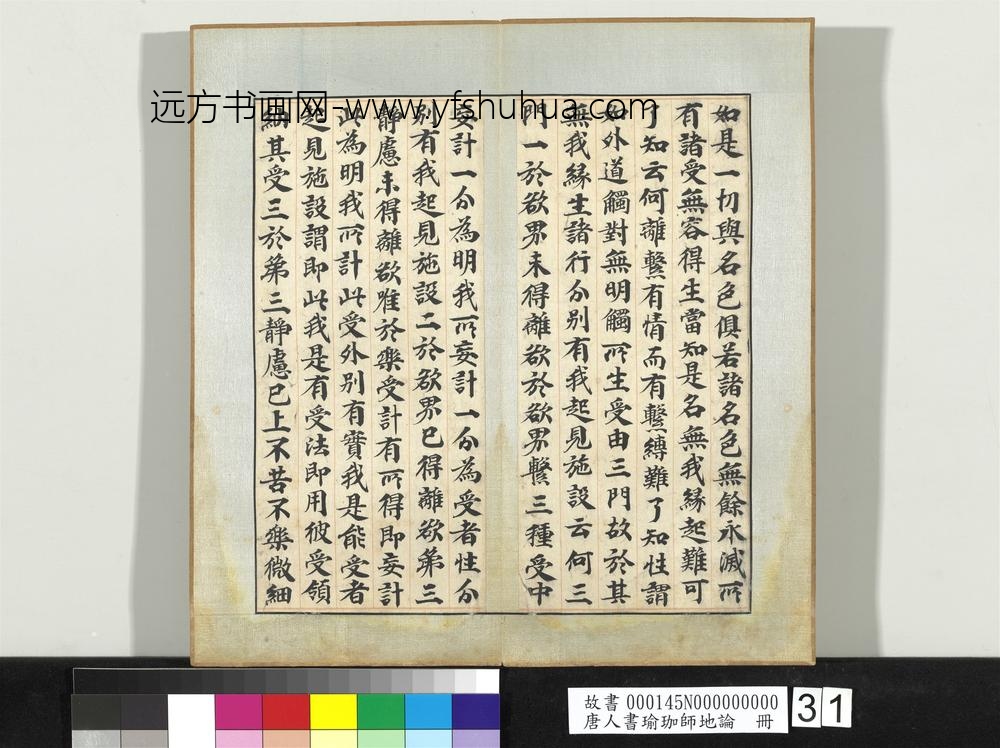 远方书画网-www.yfshuhua.com
如是一切與名色俱若諸名色無餘永滅所
有諸受無容得生當知是名無我緣起難可
了知云何離繫有情而有繫縛難了知性謂
外道觸對無明觸所生受由三門故於其
無我緣生諸行分別有我起見施設云何三
門一於欲界未得離欲於欲界繫三種受中
妄計一分為明我所妄計一分為受者性分
別有我起見施設二於欲界已得離欲第三
靜慮未得離欲唯於樂受計有所得即妄計
此為明我所計此受外別有實我是能受者
起見施設謂即此我是有受法即用彼受領
納其受三於第三靜慮已上不苦不樂微細
故書 000145N000000000
唐人書瑜珈師地論 冊
31